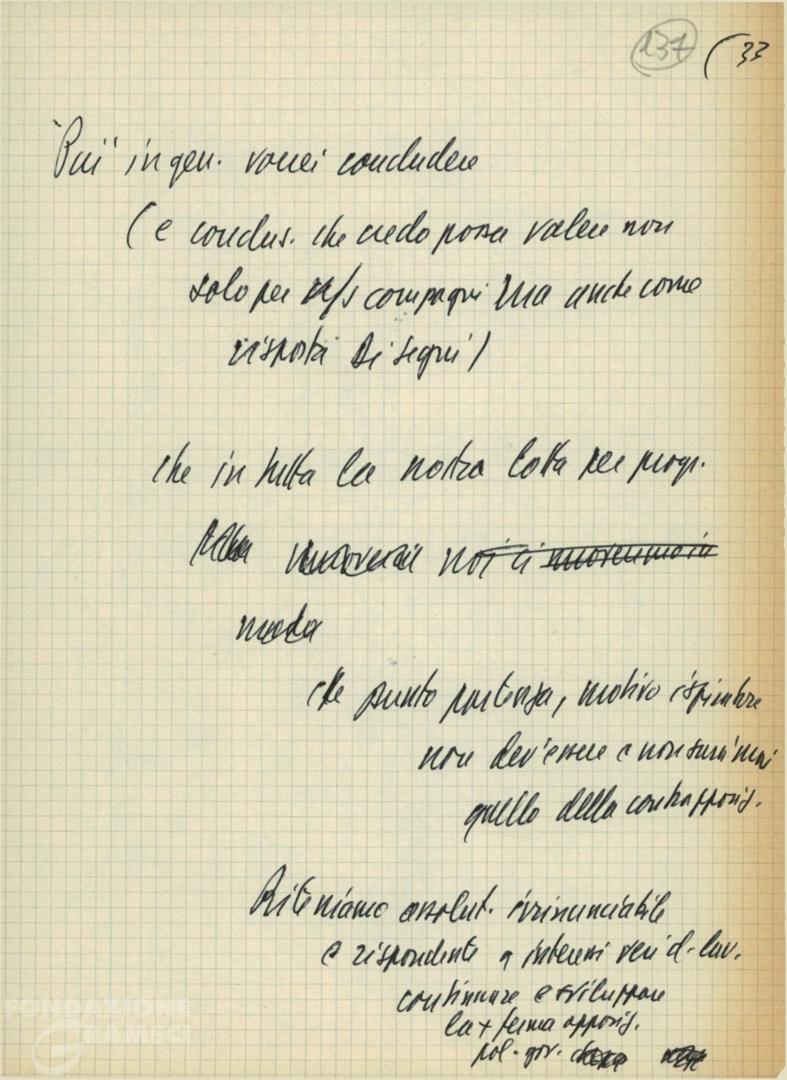 137 (33
"Più" in gen. vorrei concludere
(e conclus. che credo possa valere non
solo per n/s compagni ma anche come
risposta Di Segni)
che in tutta la nostra lotta per progr.
noi ci muoveremo in
modo
che punto partenza, motivo ispiratore
non dev'essere e non sarà mai
quello della contrappos.
Riteniamo assolut. irrinunciabile
e rispondente a interessi veri d. lav.
continuare e sviluppare
la + ferma oppos.
pol. gov.
FONDAZIONE
GRAMSCI